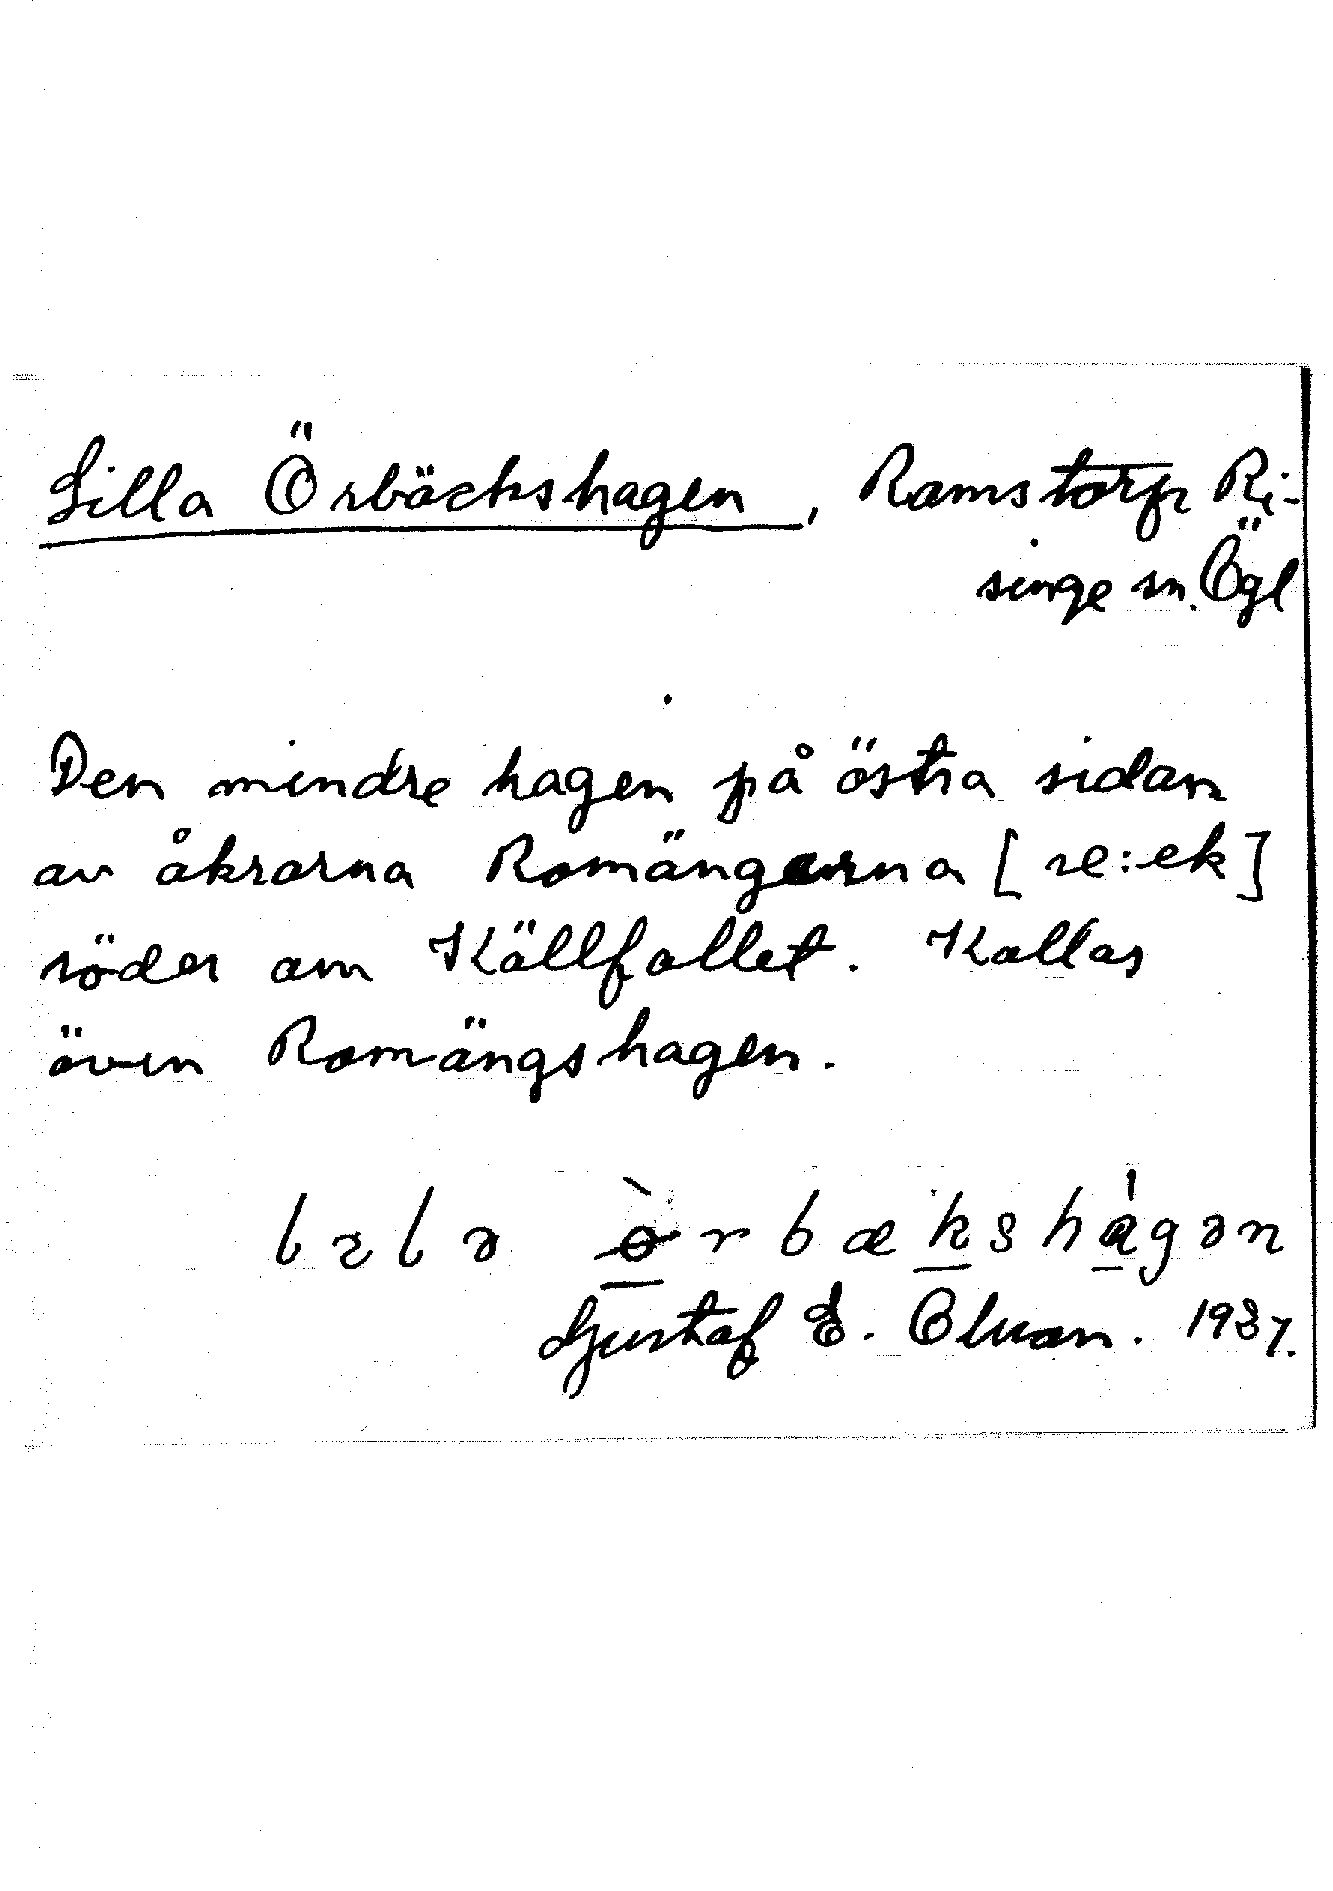 Lilla Örbäckshagen, Ramstorp Ri-
singe sn. Ögl
Den mindre hagen på östra sidan
av åkrarna Romängarna [re:ek]
söder om Källfallet. Kallas
även Romängshagen.
Gustaf E. 1937.